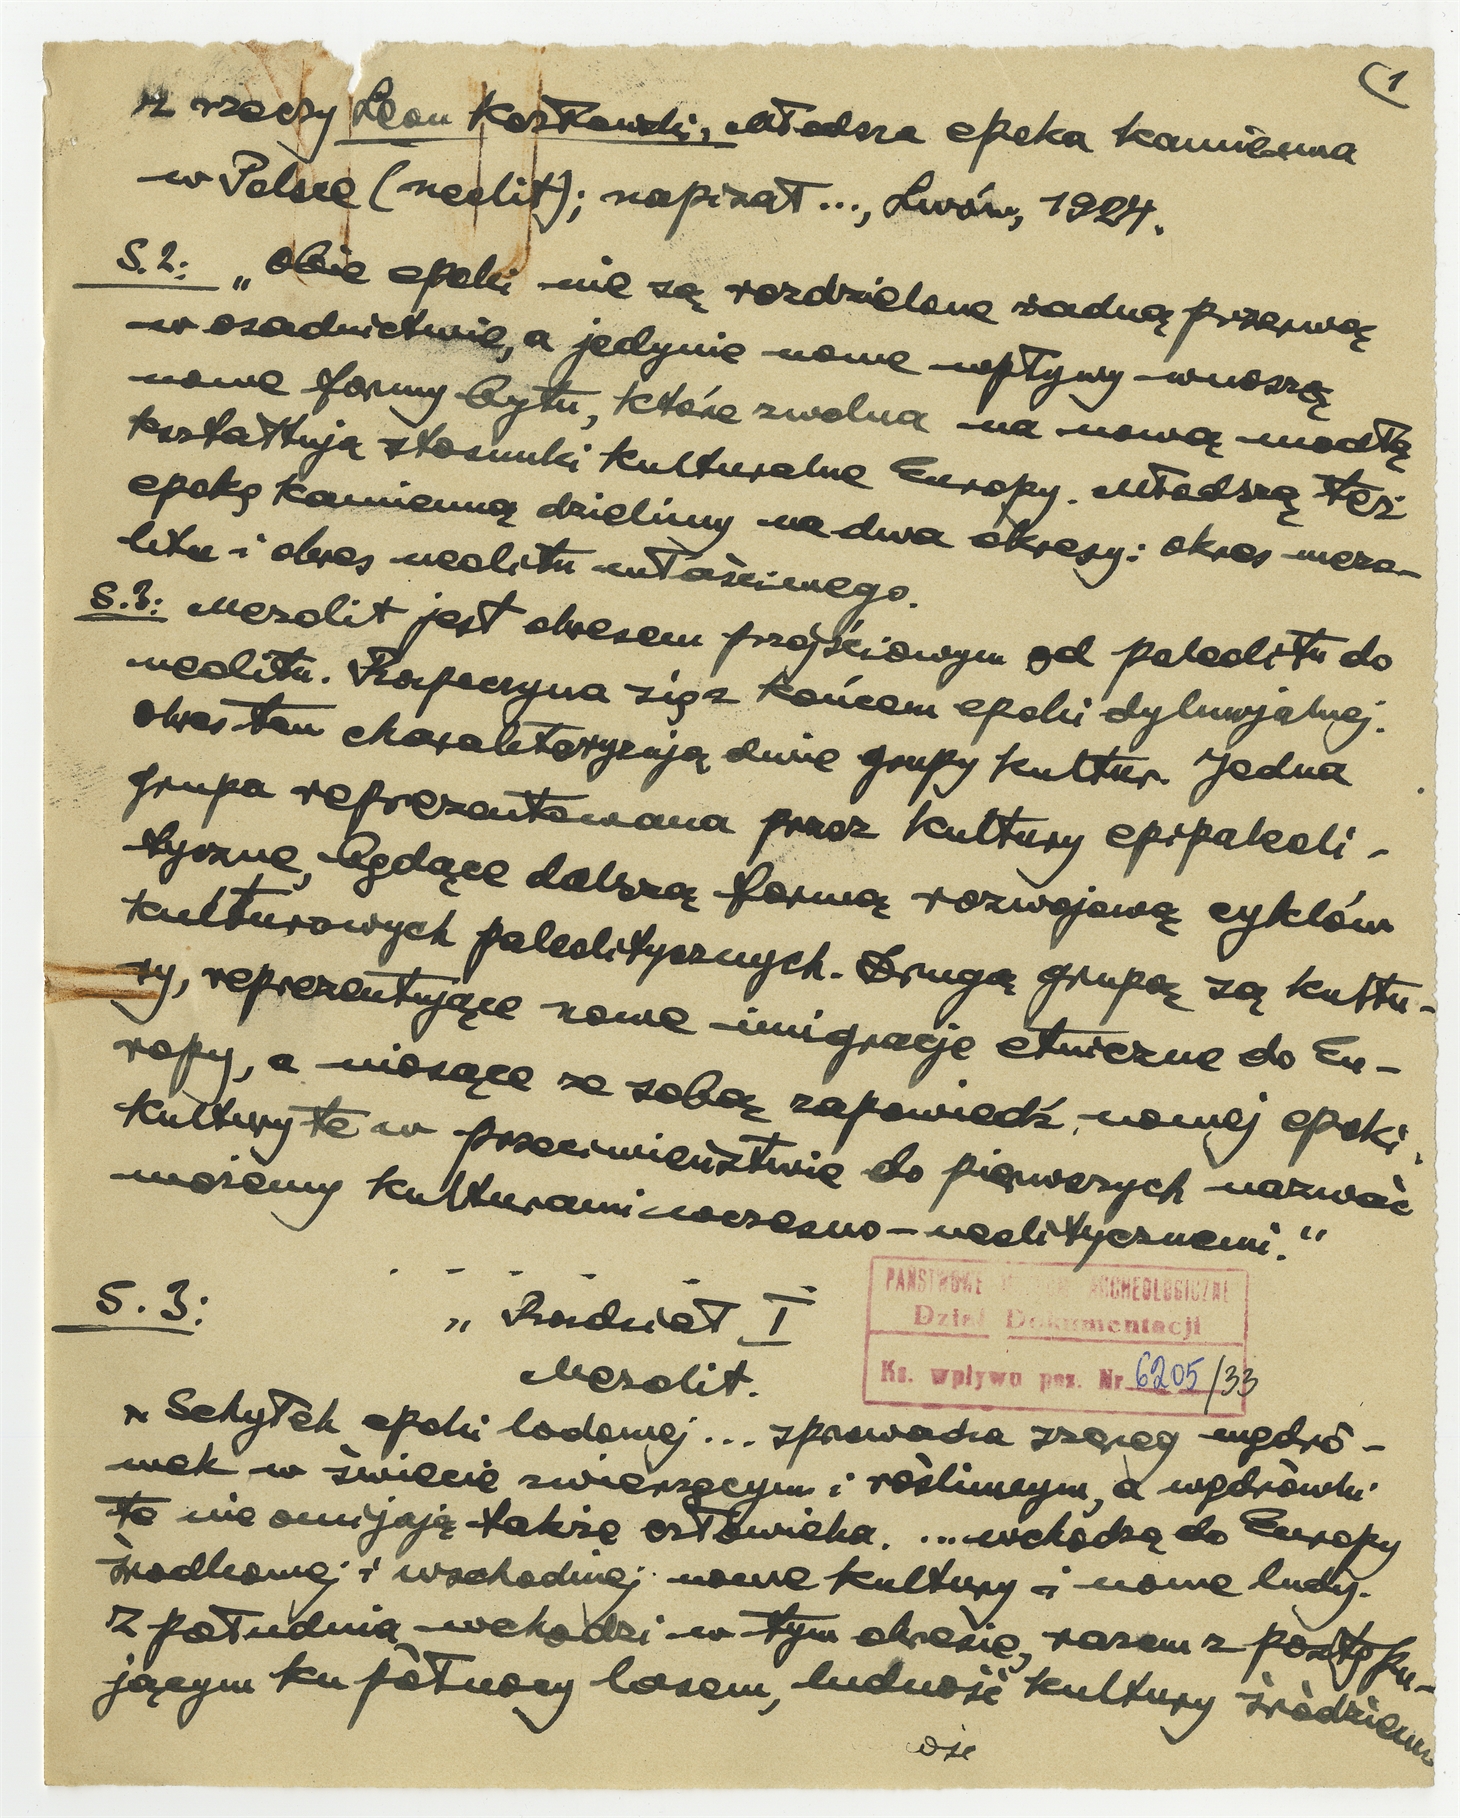 (1
Z rzeczy Leon Kozłowski, Młodsza epoka kamienna
w Polsce (neolit); napisał ..., Lwów, 1924.
S.2: „Obie epoki nie są rozdzielone żadną przerwą
w osadnictwie, a jedynie nowe wpływy wnoszą
nowe formy bytu, które zwolna na nową modłę
kształtują stosunki kulturalne Europy. Młodszą też
epokę kamienną dzielimy na dwa okresy: okres mezo-
litu i okres neolitu właściwego.
S.3: Mezolit jest okresem przejściowym od paleolitu do
neolitu. Rozpoczyna się z końcem epoki dyluwjalnej.
Okres ten charakteryzują dwie grupy kultur. Jedna
grupa reprezentowana przez kultury epipaleoli-
tyczne, będące dalszą formą rozwojową cyklów
kulturowych paleolitycznych. Drugą grupą są kultu-
ry, reprezentujące nowe imigracje etniczne do Eu-
ropy, a niosące ze sobą zapowiedź nowej epoki.
Kultury te w przeciwieństwie do pierwszych nazwać
możemy kulturami wczesno-neolitycznemi."
S. 3: „ Rozdział I
Mezolit.
Schyłek epoki lodowej ... sprowadza szereg wędró-
wek w świecie zwierzęcym i roślinnym, a wędrówki
te nie omijają także człowieka. ... wchodzą do Europy
środkowej i wschodniej nowe kultury i nowe ludy.
Z południa wchodzi w tym okresie, razem z postępu-
jącym ku północy lasem, ludność kultury śródziemno
PAŃSTWOWE MUZEUM ARCHEOLOGICZNE
Dział Dokumentacji
Ks. wpływu poz. Nr 6205/33